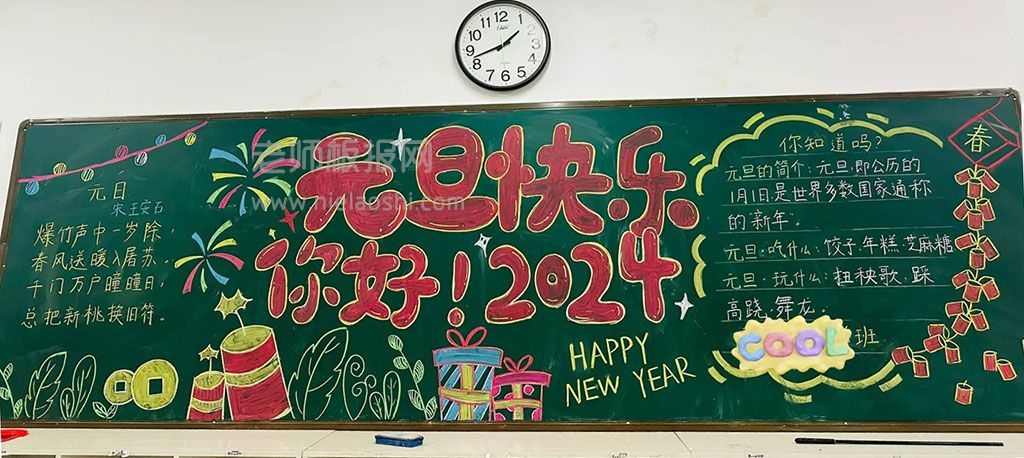 12
1
2
3
4
5
6
7
8
9
10
11
元日
宋 王安石
爆竹声中一岁除,
春风送暖入屠苏。
千门万户曈曈日,
总把新桃换旧符。
老师板报网
www.hielaoshi.com
元旦快乐
你好!2024
HAPPY
NEW YEAR
你知道吗?
元旦的简介:元旦,即公历的
1月1日,是世界多数国家通称
的新年。
元旦·吃什么:饺子 年糕 芝麻糖
元旦·玩什么:扭秧歌、踩
高跷、舞龙。
COOL 班
春